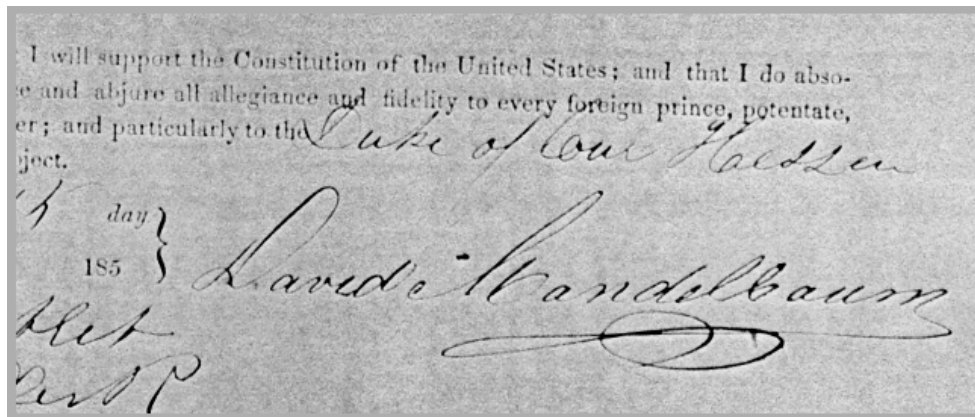 I will support the Constitution of the United States; and that I do abso-
e and abjure all allegiance and fidelity to every foreign prince, potentate,
er; and particularly to the Duke of Cur Hessen
ject.
th day
185 David Mandelbaum
Clerk